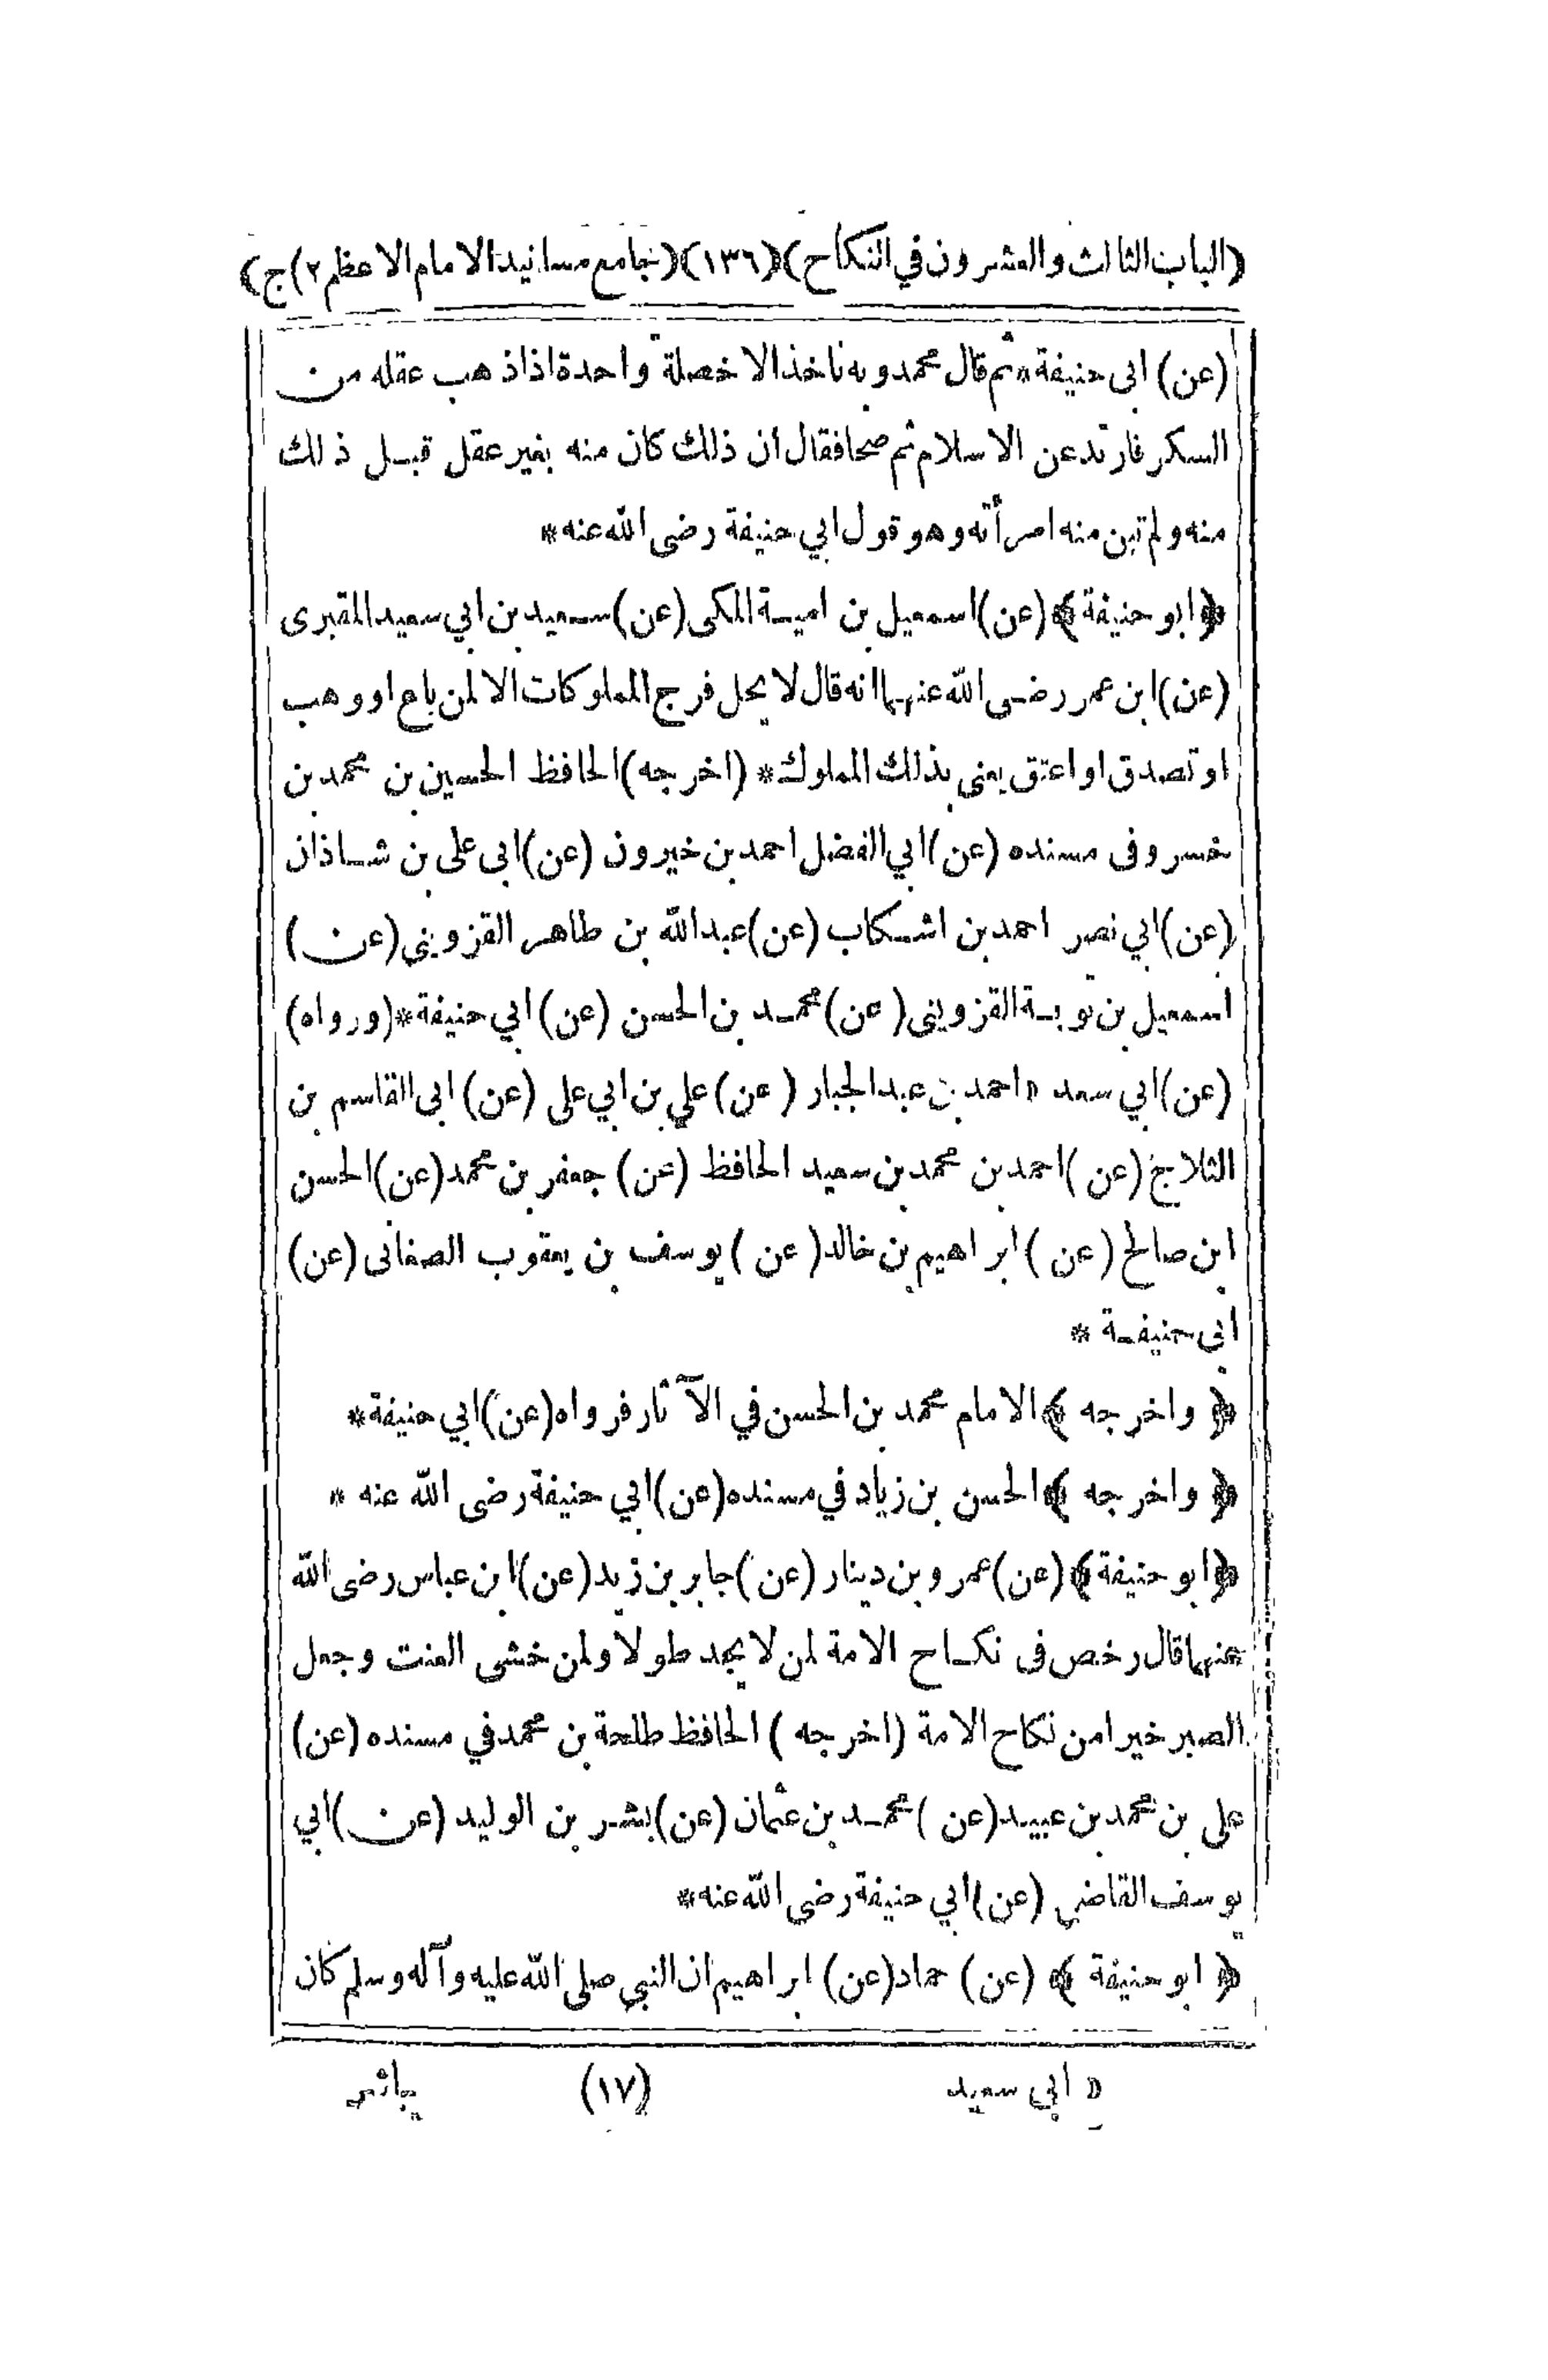 (الباب الثالث والعشرون في النكاح) (١٣٦) (جامع مسانيد الامام الاعظم ٢) ج)
(عن) ابى حنيفة * ثم قال محمد وبه ناخذ الا خصلة واحدة اذا ذهب عقله من
السكر فارتد عن الاسلام ثم صحا فقال ان ذلك كان منه بغير عقل قبل ذلك
منه ولم تبن منه امرأته وهو قول ابي حنيفة رضى الله عنه *
﴿ ابو حنيفة ﴾ (عن) اسمعيل بن امية المكى (عن) سعيد بن ابي سعيد المقبرى
(عن) ابن عمر رضى الله عنهما انه قال لا يحل فرج المملوكات الا لمن باع او وهب
او تصدق او اعتق يعنى بذلك المملوك * (اخرجه) الحافظ الحسين بن محمد بن
خسرو فى مسنده (عن) ابي الفضل احمد بن خيرون (عن) ابى على بن شاذان
(عن) ابي نصر احمد بن اشكاب (عن) عبد الله بن طاهر القزوينى (عن)
اسمعيل بن توبة القزوينى (عن) محمد بن الحسن (عن) ابي حنيفة * (ورواه)
(عن) ابي سعد ۵ احمد بن عبد الجبار (عن) علي بن ابي على (عن) ابى القاسم بن
الثلاج (عن) احمد بن محمد بن سعيد الحافظ (عن) جعفر بن محمد (عن) الحسن
ابن صالح (عن) ابراهيم بن خالد (عن) يوسف بن يعقوب الصغانى (عن)
ابى حنيفة *
﴿ واخرجه ﴾ الامام محمد بن الحسن في الآثار فرواه (عن) ابي حنيفة *
﴿ واخرجه ﴾ الحسن بن زياد في مسنده (عن) ابي حنيفة رضى الله عنه *
﴿ ابو حنيفة ﴾ (عن) عمرو بن دينار (عن) جابر بن زيد (عن) ابن عباس رضى الله
عنهما قال رخص فى نكاح الامة لمن لا يجد طولا ولمن خشى العنت وجعل
الصبر خيرا من نكاح الامة (اخرجه) الحافظ طلحة بن محمد في مسنده (عن)
على بن محمد بن عبيد (عن) محمد بن عثمان (عن) بشر بن الوليد (عن) ابي
يوسف القاضي (عن) ابي حنيفة رضى الله عنه *
﴿ ابو حنيفة ﴾ (عن) حماد (عن) ابراهيم ان النبي صلى الله عليه وآله وسلم كان
۵ ابي سعيد (١٧) يباشر